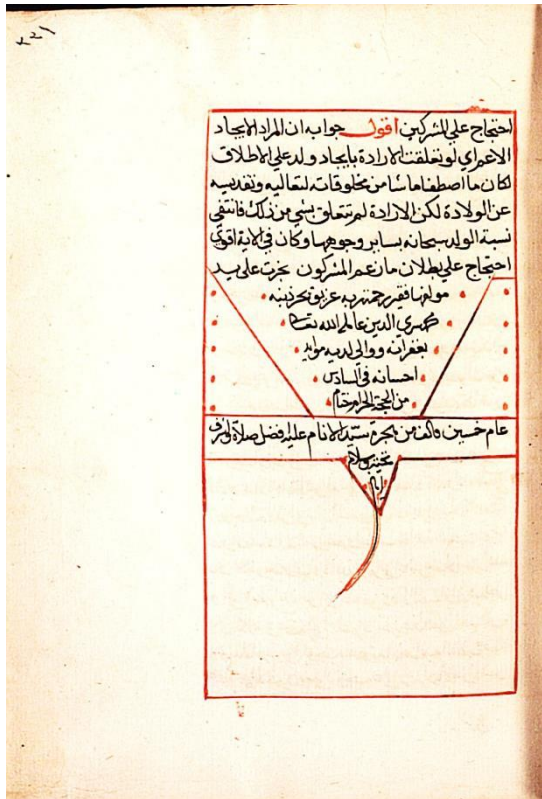 ٢٢١
احتجاج علي المشركين اقول جوابه ان المراد الايجاد
الاعم اي لو تعلقت الارادة بايجاد ولد علي الاطلاق
لكان ما اصطفاه ما شا من مخلوقاته لتعاليه وتقديسه
عن الولادة لكن الارادة لم تتعلق بشي من ذلك فانتفي
نسبة الولد سبحانه بساير وجوهها وكان في الاية اقوي
احتجاج علي بطلان ما زعم المشركون نجزت على يد
مولفها فقير رحمة ربه غريق بحر ذنبه
الدين عامله الله تعا
بغفرانه ووالي لديه موايد
احسانه في السادس
من الحجة الحرام ختام
عام خمسين والف من هجرة سيد الانام عليه افضل صلاة واشرف
تحية وسلام